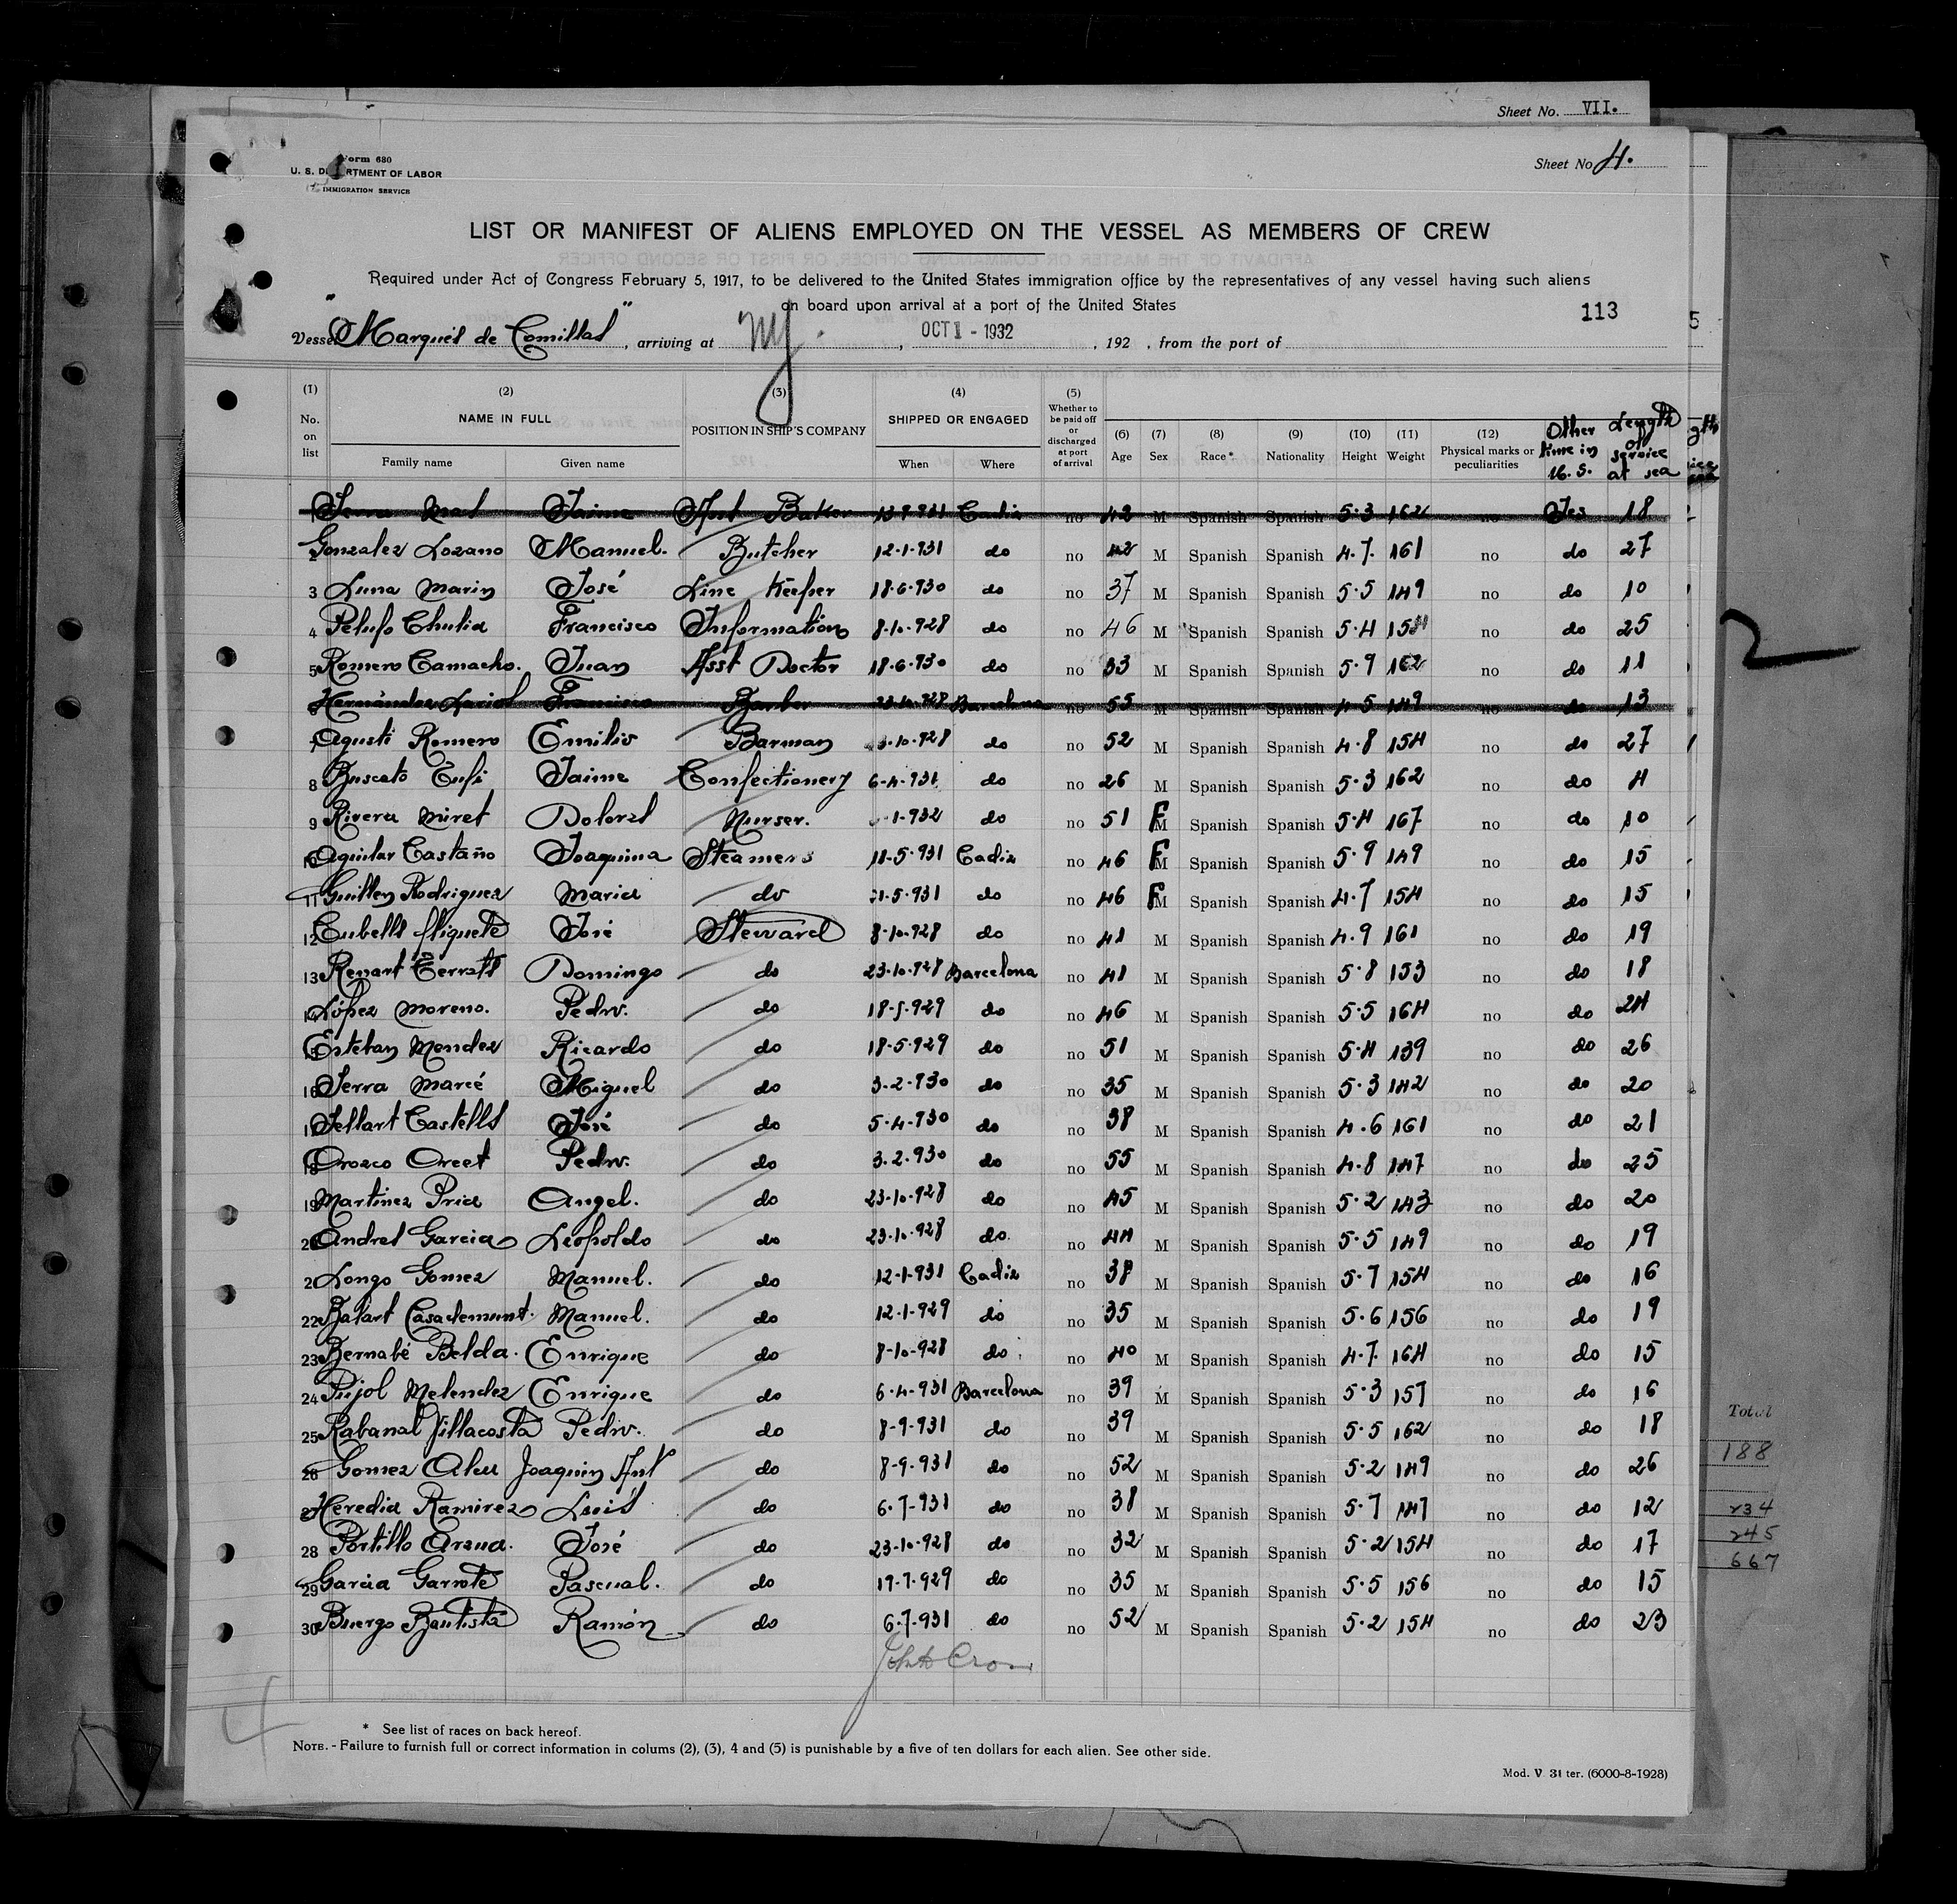 Sheet No. VII.
Form 680
U. S. DEPARTMENT OF LABOR
IMMIGRATION SERVICE
Sheet No 4.
LIST OR MANIFEST OF ALIENS EMPLOYED ON THE VESSEL AS MEMBERS OF CREW
Required under Act of Congress February 5, 1917, to be delivered to the United States immigration office by the representatives of any vessel having such aliens
on board upon arrival at a port of the United States
113
5
Vessel "Marqués de Comillas", arriving at NY. , OCT 1 - 1932 , 192 , from the port of
(1) (2) (3) (4) (5)
No. on list NAME IN FULL POSITION IN SHIP'S COMPANY SHIPPED OR ENGAGED Whether to be paid off or discharged at port of arrival
Family name Given name When Where (6) Age (7) Sex (8) Race* (9) Nationality (10) Height (11) Weight (12) Physical marks or peculiarities Other time in U. S. Length of service at sea
1 Serra Mas Jaime Asst Baker 13-9-931 Cadiz no 42 M Spanish Spanish 5.3 162 no Yes 18
2 Gonzalez Lozano Manuel. Butcher 12-1-931 do no 42 M Spanish Spanish 4.7. 161 no do 27
3 Luna Marin José Line Keeper 18-6-930 do no 37 M Spanish Spanish 5.5 149 no do 10
4 Pelufo Chulia Francisco Information 8-10-928 do no 46 M Spanish Spanish 5.4 154 no do 25
5 Romero Camacho. Juan Asst Doctor 18-6-930 do no 33 M Spanish Spanish 5.9 162 no do 11
6 Hernández Francisco Barber 23-10-928 Barcelona no 55 M Spanish Spanish 4.5 149 no do 13
7 Agusti Romero Emilio Barman 3-10-928 do no 52 M Spanish Spanish 4.8 154 no do 27
8 Buscató Eufi Jaime Confectionery 6-4-931 do no 26 M Spanish Spanish 5.3 162 no do 4
9 Rivera Miret Dolores Nurser. 1-932 do no 51 F M Spanish Spanish 5.4 167 no do 10
10 Aguilar Castaño Joaquina Steamers 11-5-931 Cadiz no 46 F M Spanish Spanish 5.9 149 no do 15
11 Guillen Rodriguez Maria do 11-5-931 do no 46 F M Spanish Spanish 4.7 154 no do 15
12 Cubells José Steward 8-10-928 do no 41 M Spanish Spanish 4.9 161 no do 19
13 Renart Domingo do 23-10-928 Barcelona no 41 M Spanish Spanish 5.8 153 no do 18
14 López Moreno. Pedro. do 18-5-929 do no 46 M Spanish Spanish 5.5 164 no do 24
15 Esteban Mendez Ricardo do 18-5-929 do no 51 M Spanish Spanish 5.4 139 no do 26
16 Serra Marcé Miguel do 3-2-930 do no 35 M Spanish Spanish 5.3 142 no do 20
17 Sellart Castells José do 5-4-930 do no 38 M Spanish Spanish 4.6 161 no do 21
18 Orozco Orcet Pedro. do 3-2-930 do no 55 M Spanish Spanish 4.8 147 no do 25
19 Martinez Pria Angel. do 23-10-928 do no 45 M Spanish Spanish 5.2 143 no do 20
20 Andres Garcia Leopoldo do 23-10-928 do. no 44 M Spanish Spanish 5.5 149 no do 19
21 Longo Gomez Manuel. do 12-1-931 Cadiz no 38 M Spanish Spanish 5.7 154 no do 16
22 Balart Casademunt. Manuel. do 12-1-929 do no 35 M Spanish Spanish 5.6 156 no do 19
23 Bernabé Belda. Enrique do 8-10-928 do no 40 M Spanish Spanish 4.7. 164 no do 15
24 Pujol Melendez Enrique do 6-4-931 Barcelona no 39 M Spanish Spanish 5.3 157 no do 16
25 Rabanal Villacosta Pedro. do 8-9-931 do no 39 M Spanish Spanish 5.5 162 no do 18
26 Gomez Aleu Joaquin Ant do 8-9-931 do no 52 M Spanish Spanish 5.2 149 no do 26
27 Heredia Ramirez Luis do 6-7-931 do no 38 M Spanish Spanish 5.7 147 no do 12
28 Portillo Arana. José do 23-10-928 do no 32 M Spanish Spanish 5.2 154 no do 17
29 Garcia Garrote Pascual. do 17-7-929 do no 35 M Spanish Spanish 5.5 156 no do 15
30 Buergo Bautista Ramón do 6-7-931 do no 52 M Spanish Spanish 5.2 154 no do 23
Total
188
234
245
667
4
* See list of races on back hereof.
NOTE. - Failure to furnish full or correct information in colums (2), (3), 4 and (5) is punishable by a five of ten dollars for each alien. See other side.
Mod. V. 31 ter. (6000-8-1928)